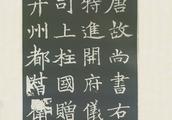 唐故尚書右
特進開府儀
司上柱國贈
幷州都督衛